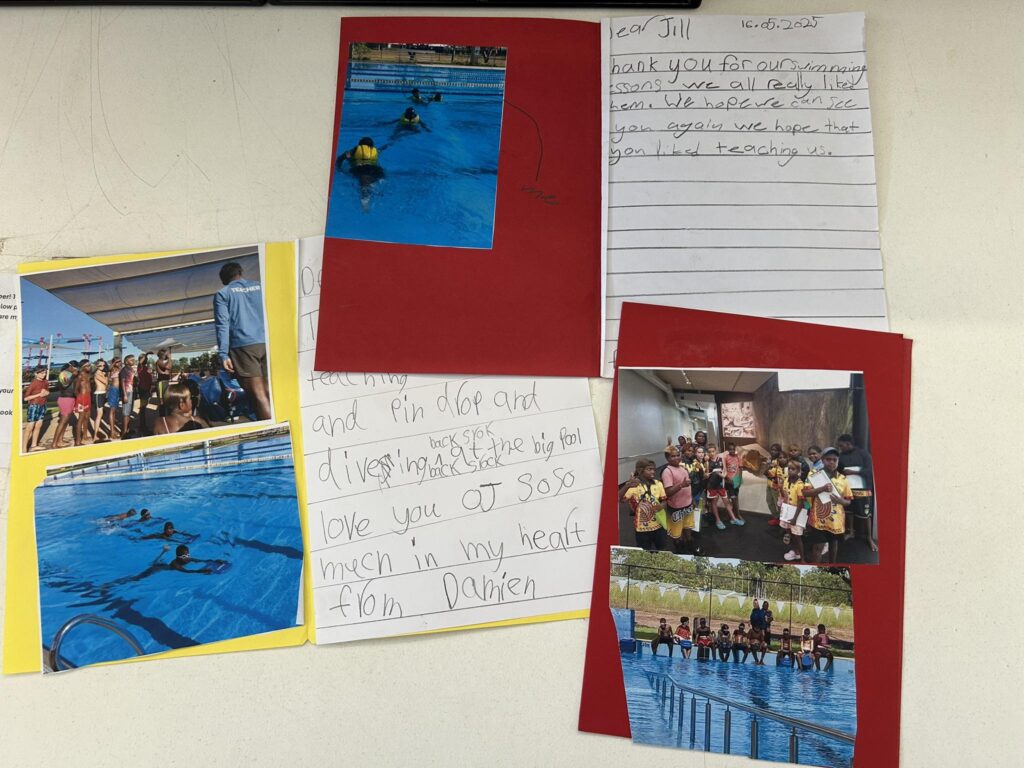 ear Jill 16.05.2025
hank you for our swimming
essons we all really liked
hem. We hope we can see
you again we hope that
you liked teaching us.
teaching
and pin drop and
back strok
diveing at the big Pool
back stock
love you OJ SoSo
much in my heart
from Damien
TEACHER
your
ook